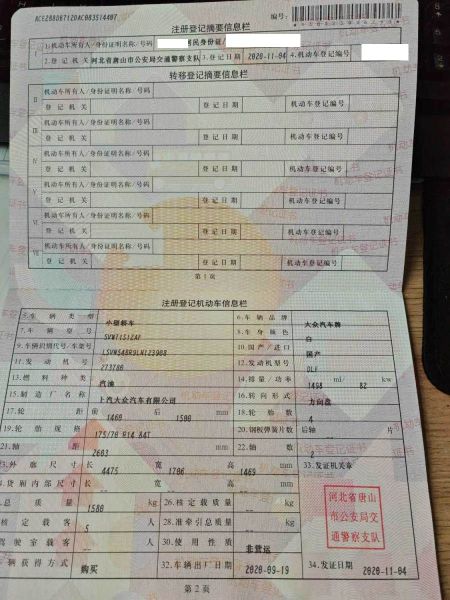 注册登记摘要信息栏
编号:
I 1.机动车所有人/身份证明名称/号码 居民身份证/
2.登记机关 河北省唐山市公安局交通警察支队 3.登记日期 2020-11-04 4.机动车登记编号
转移登记摘要信息栏
II 机动车所有人/身份证明名称/号码
登记机关 登记日期 机动车登记编号
III 机动车所有人/身份证明名称/号码
登记机关 登记日期 机动车登记编号
IV 机动车所有人/身份证明名称/号码
登记机关 登记日期 机动车登记编号
V 机动车所有人/身份证明名称/号码
登记机关 登记日期 机动车登记编号
VI 机动车所有人/身份证明名称/号码
登记机关 登记日期 机动车登记编号
VII 机动车所有人/身份证明名称/号码
登记机关 登记日期 机动车登记编号
第1页
注册登记机动车信息栏
5.车辆类型 小型轿车 6.车辆品牌 大众汽车牌
7.车辆型号 8.车身颜色 白
9.车辆识别代号/车架号 10.国产/进口 国产
11.发动机号 273786 12.发动机型号 DLF
13.燃料种类 汽油 14.排量/功率 1498 ml/ 82 kw
15.制造厂名称 上汽大众汽车有限公司 16.转向形式 方向盘
17.轮距 前 1460 后 1500 mm 18.轮胎数 4
19.轮胎规格 175/70 R14 84T 20.钢板弹簧片数 后轴 -- 片
21.轴距 2603 mm 22.轴数 2
23.外廓尺寸 长 4475 宽 1706 高 1469 mm 33.发证机关章
货厢内部尺寸 长 -- 宽 -- 高 -- mm
总质量 1580 kg 26.核定载质量 -- kg
核定载客 5 人 28.准牵引总质量 -- kg
驾驶室载客 -- 人 30.使用性质 非营运
车辆获得方式 购买 32.车辆出厂日期 2020-09-19 34.发证日期 2020-11-04
河北省唐山
市公安局交
通警察支队
第2页